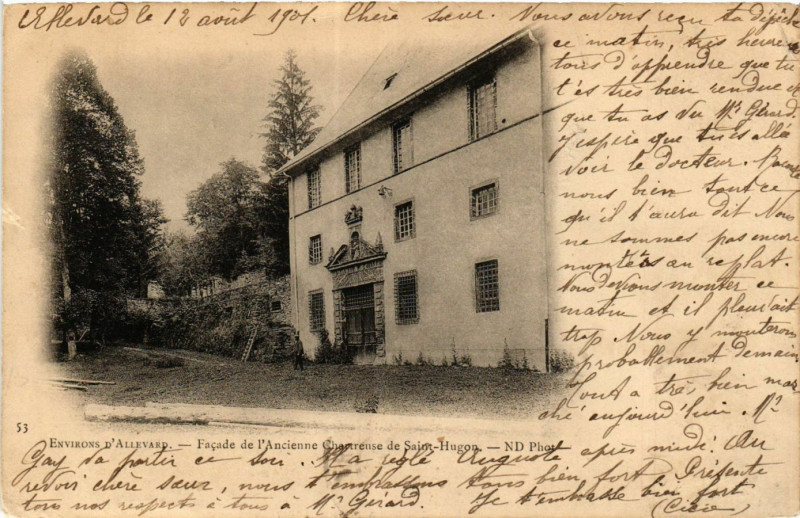 Allevard le 12 août 1901. Chère sœur. Nous avons reçu ta dépêche
ce matin, très heureux
tous d'apprendre que tu
t'es très bien rendue et
que tu as vu Mr Gérard.
J'espère que tu es allée
voir le docteur.
nous bien tout ce
qu'il t'aura dit Nous
ne sommes pas encore
montés au replat.
Nous devions monter ce
matin et il pleuvait
trop Nous y monterons
probablement demain
Tout a très bien mar
ché aujourd'hui. Mr
53
ENVIRONS D'ALLEVARD. — Façade de l'Ancienne Chartreuse de Saint-Hugon. — ND Phot
Gay va partir ce soir. M'a réglé Auguste après midi. Au
revoir chère sœur, nous t'embrassons tous bien fort. Présente
tous nos respects à tous à Mr Gérard. Je t'embrasse bien fort